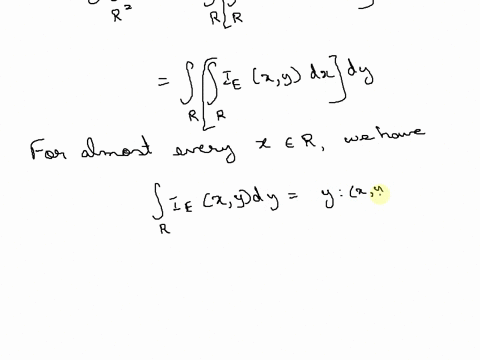 R² R R
= ∫_R [ ∫_R I_E (x,y) dx ] dy
For almost every x ∈ R, we have
∫_R I_E (x,y) dy = y : (x, y